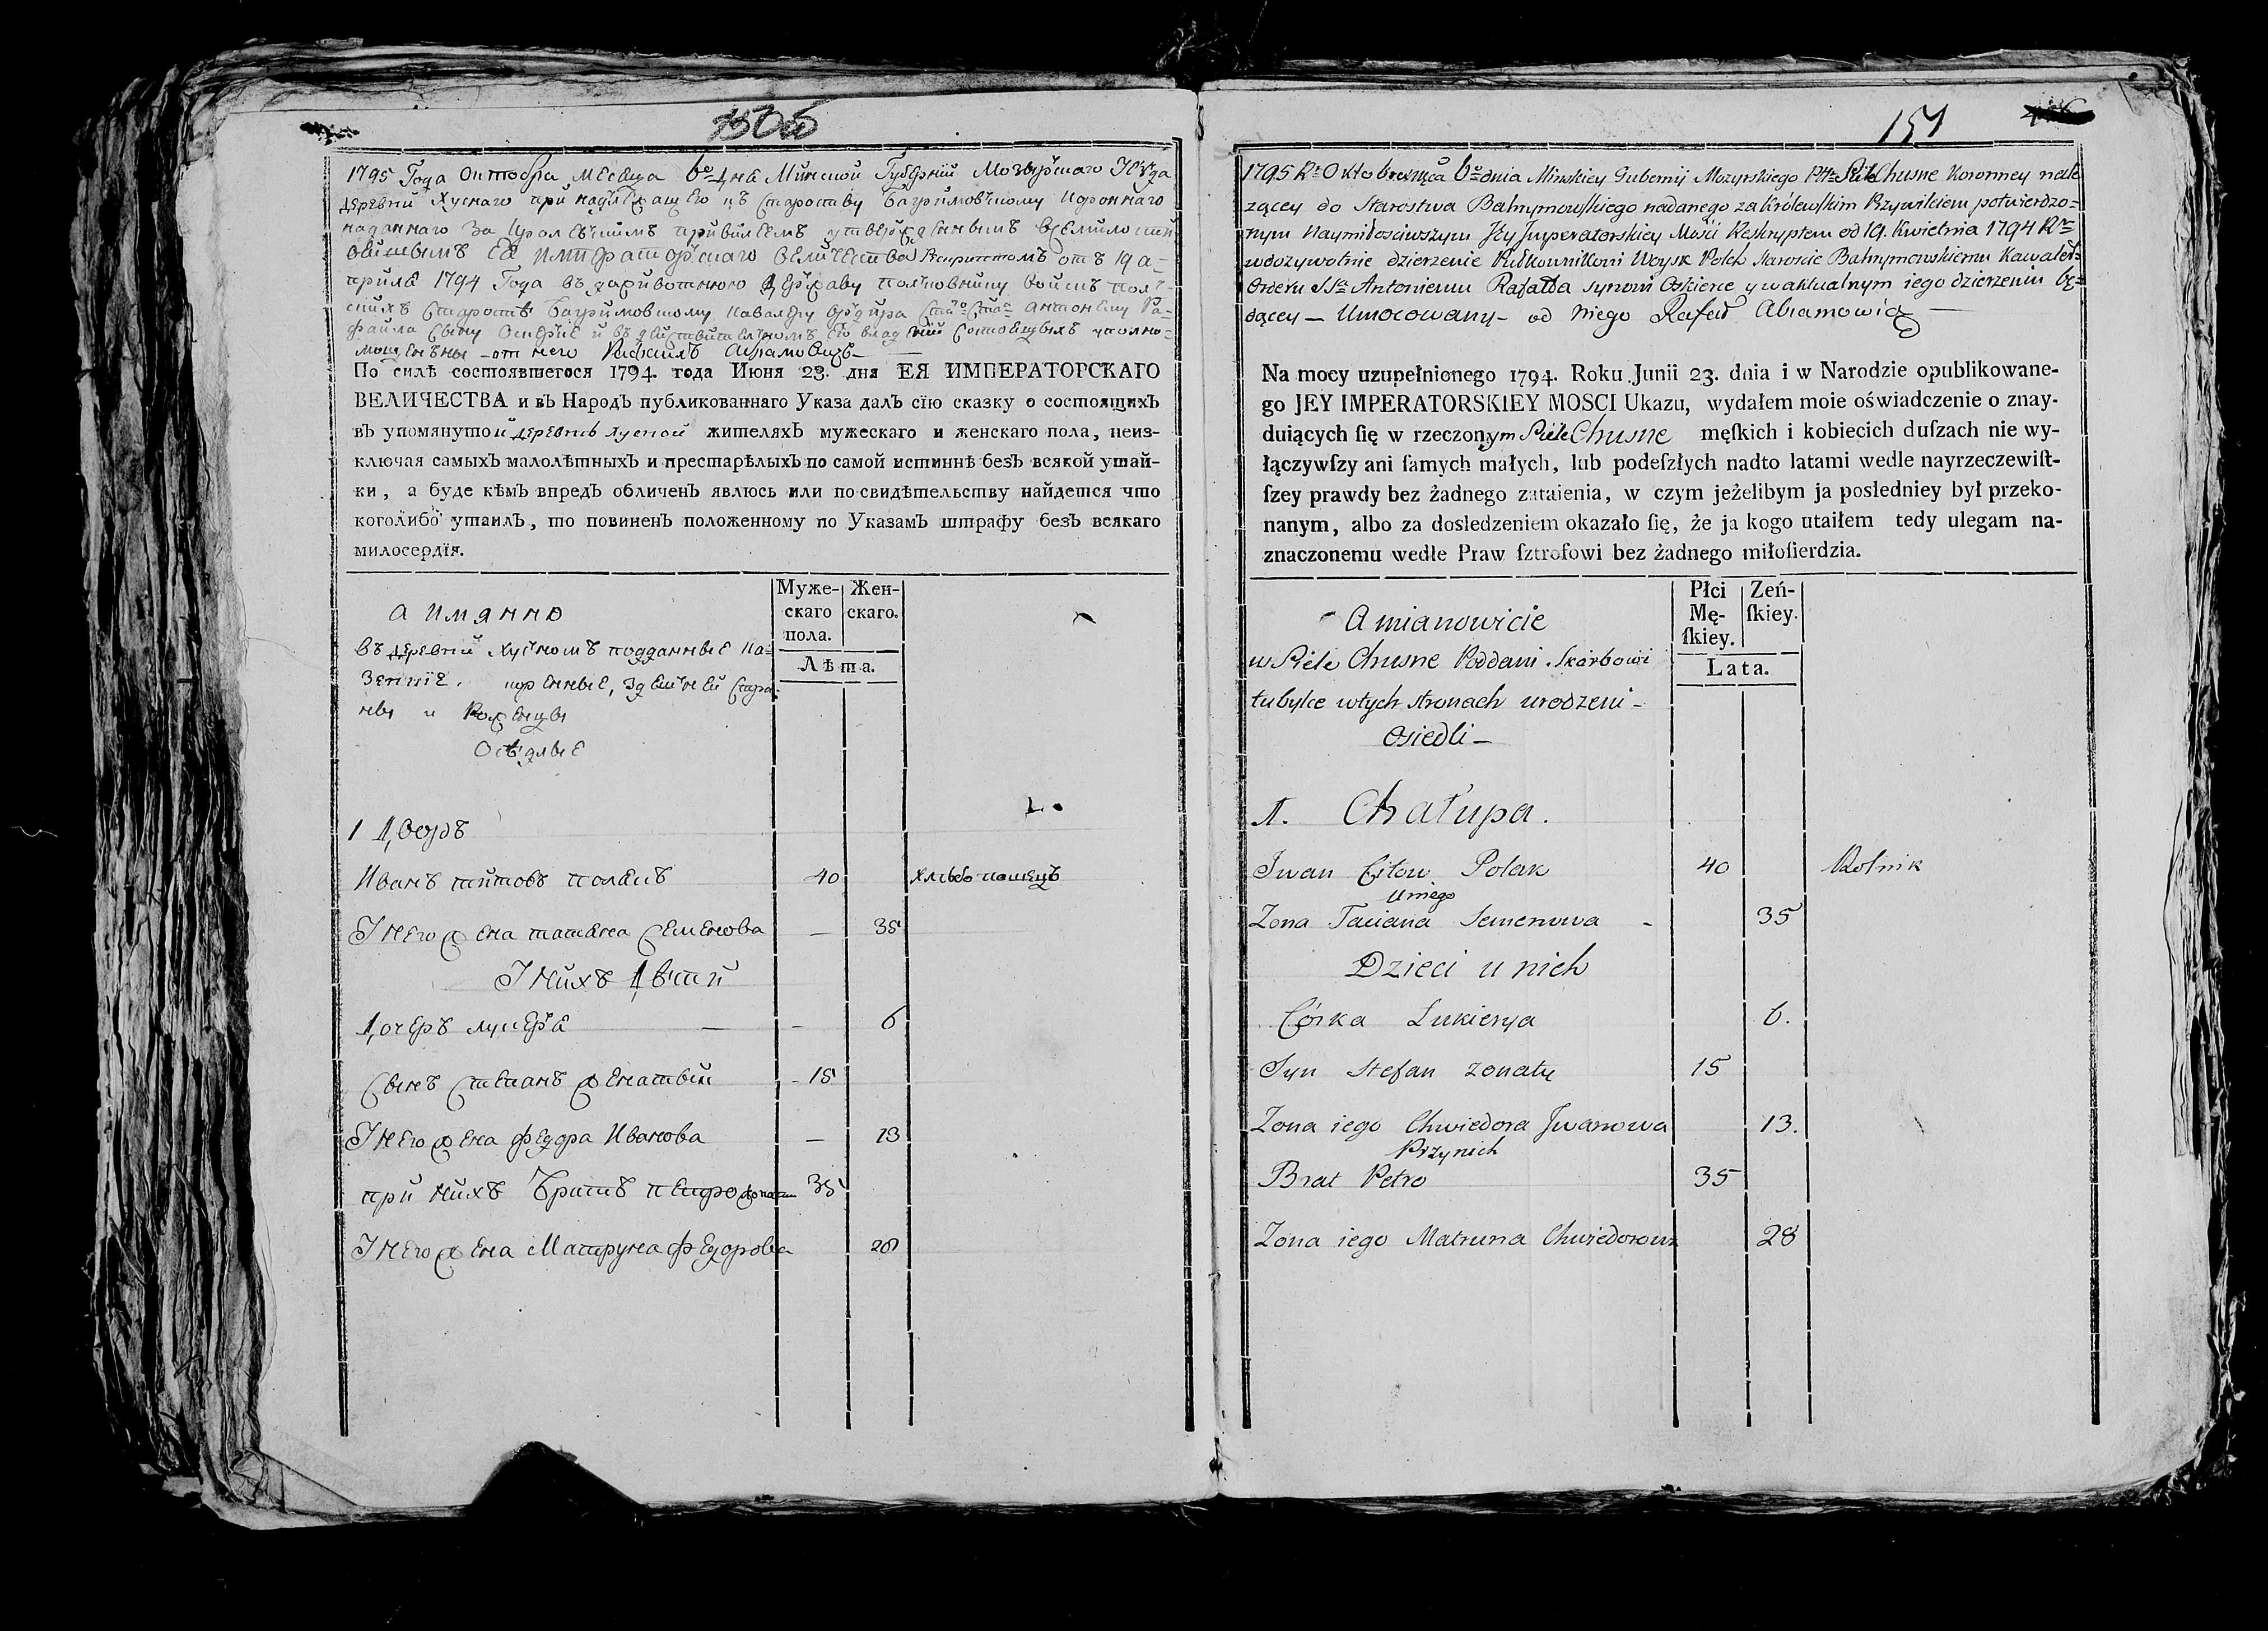 150об
1795 Года Октобра месеца 6го дня Минской Губерній Мозырского
деревни Хусного принадлежащего къ Староству Бахримовскому Коронного
наданного за Кролевскимъ привилеемъ утвержденнымъ всемилостий
вейшымъ Ея Императорского Величества Рескриптомъ отъ 19 а-
приля 1794 Года въ державу полковнику войскъ поль-
скихъ Старосте Бахримовскому Кавалеру ордера Антонему Ра-
файла сыну Оскерке и въ действителномъ его владений упольно-
моценны - отъ него Рафаилъ Абрамовичъ
По силѣ состоявшегося 1794. года Июня 23. дня ЕЯ ИМПЕРАТОРСКАГО
ВЕЛИЧЕСТВА и въ Народъ публикованнаго Указа далъ сїю сказку о состоящихъ
въ упомянутой деревнѣ хусной жителяхъ мужескаго и женскаго пола, неиз-
ключая самыхъ малолѣтныхъ и престарѣлыхъ по самой истиннѣ безъ всякой утай-
ки, а буде кѣмъ впредъ обличенъ явлюсь или по свидѣтельству найдется что
коголибо утаилъ, то повиненъ положенному по Указамъ штрафу безъ всякаго
милосердїя.
а имянно
Муже-
скаго
пола.
Жен-
скаго.
Лѣта.
въ деревни Хусномъ подданные ка-
зенніе,
ны и Роженцы
Осѣдлые
1 Дворъ
Иванъ титовъ поляк 40 хлѣбопашецъ
У него жена татяна Семенова — 35
У нихъ Дѣти
Дочеръ лукеря — 6
Сынъ Степанъ женатый 15
У него жена федора Иванова — 13
при нихъ Братъ петро 35
У него жена Матруна федорова 28
151
1795 Rku Oktobra msca 6o dnia Minskiey Gubernij Mozyrskiego Pttu Siele Chusne Koronney nale
zącey do Starostwa Bahrymowskiego nadanego za Królewskim Przywileiem potwierdzo-
nym Naymiłosciwszym Jey Jmperatorskiey Mości Reskryptem od 19. Kwietnia 1794 Rku
w dozywotnie dzierzenie Pułkownikowi Woysk Polch Staroscie Bahrymowskiemu Kawaler.
Orderu Sgo Antoniemu Rafałda synowi Oskierce y w aktualnym iego dzierzeniu bę-
dącey — Umocowany — od Niego Rafał Abramowicz —
Na mocy uzupełnionego 1794. Roku Junii 23. dnia i w Narodzie opublikowane-
go JEY IMPERATORSKIEY MOSCI Ukazu, wydałem moie oświadczenie o znay-
duiących ſię w rzeczonym Siele Chusne męſkich i kobiecich duſzach nie wy-
łączywſzy ani ſamych małych, lub podeſzłych nadto latami wedle nayrzeczewiſt-
ſzey prawdy bez żadnego zataienia, w czym jeżelibym ja posledniey był przeko-
nanym, albo za dosledzeniem okazało ſię, że ja kogo utaiłem tedy ulegam na-
znaczonemu wedle Praw ſztrofowi bez żadnego miłoſierdzia.
A mianowicie
Płci
Mę-
ſkiey.
Zeń-
ſkiey.
Lata.
w Siele Chusne Poddani Skarbowi
tubylce wtych stronach urodzeni -
Osiedli -
1. Chałupa.
Jwan Citow Polak 40 Rolnik
U niego
Zona Taciana Semenowa - 35
Dzieci u nich
Córka Lukierya 6.
Syn Stefan zonaty 15
Zona iego Chwiedora Jwanowa 13.
Przy nich
Brat Petro 35
Zona iego Matruna Chwiedorowa 28